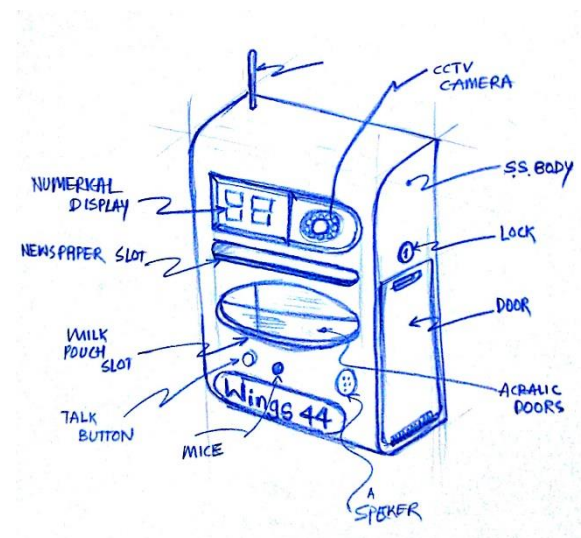 CCTV
CAMERA
S.S. BODY
NUMERICAL
DISPLAY
88
NEWSPAPER SLOT
LOCK
DOOR
MILK
POUCH
SLOT
ACRALIC
DOORS
TALK
BUTTON
MICE
Wings 44
A
SPEKER